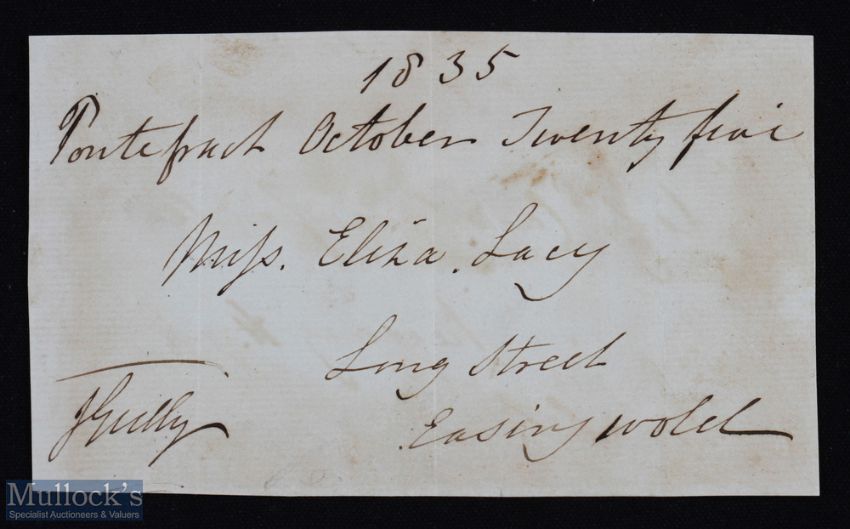 1835
Pontefract October Twenty five
Miss. Eliza. Lacy
Long Street
Easingwold
JGully
Mullock's
Specialist Auctioneers & Valuers